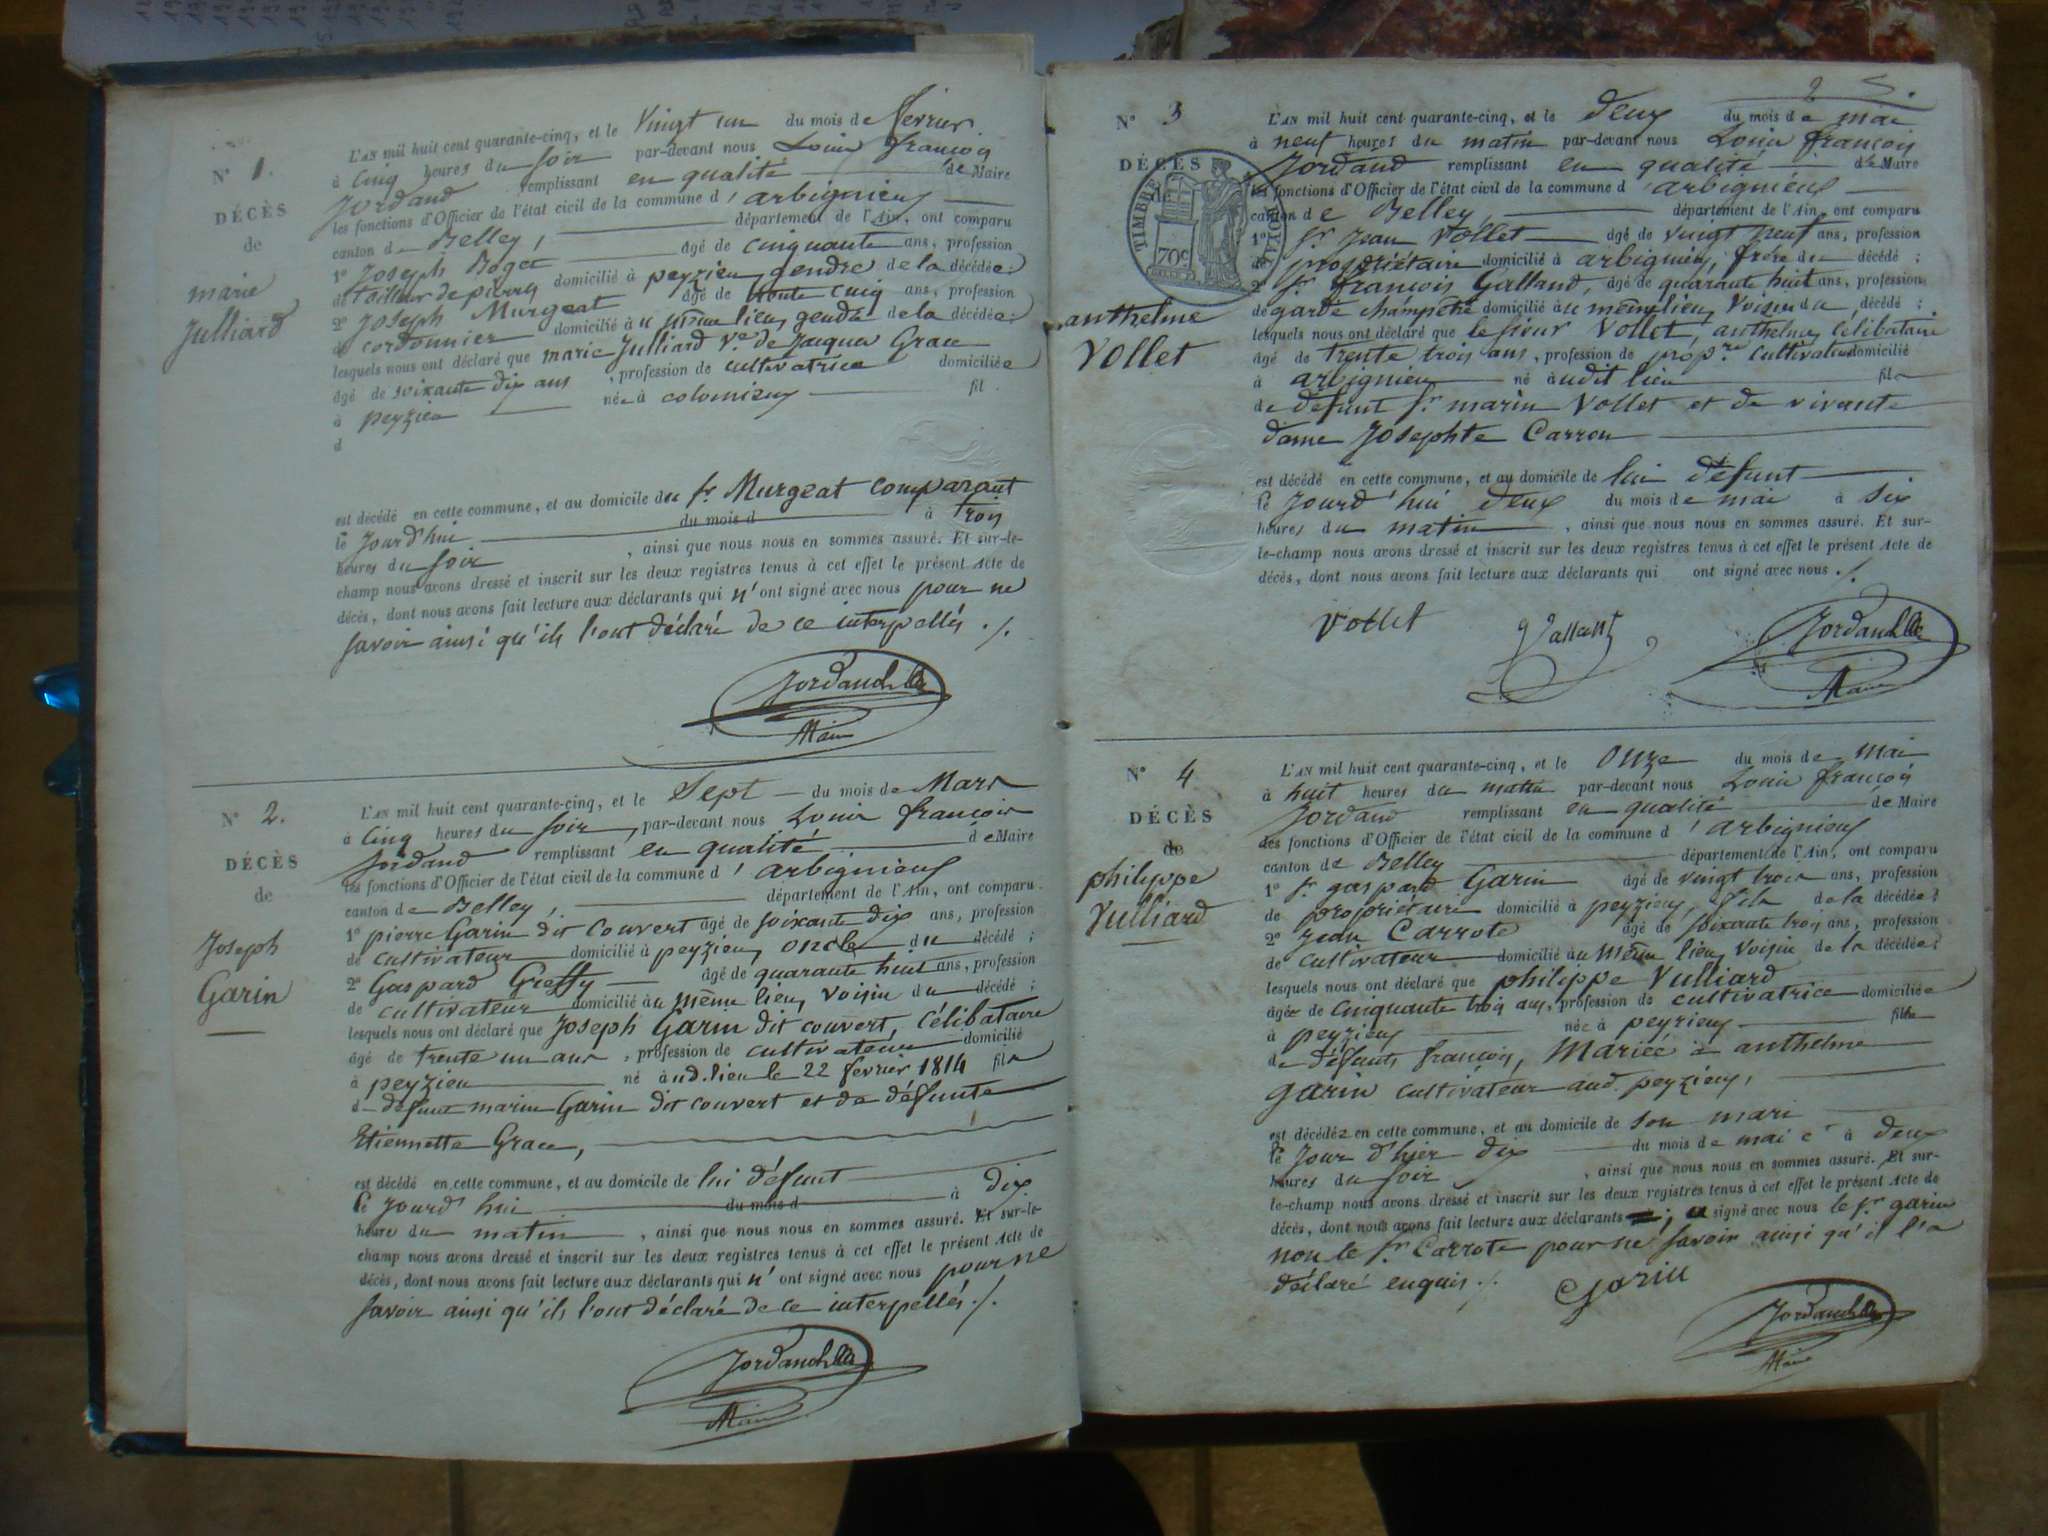 N° 1.
DÉCÈS
de
marie
Julliard
L'AN mil huit cent quarante-cinq, et le Vingt un du mois de février
à Cinq heures du soir par-devant nous Louis françois
Jordand remplissant en qualité de Maire
les fonctions d'Officier de l'état civil de la commune d'arbignieux
canton de Belley, département de l'Ain, ont comparu
1° Joseph Roget âgé de cinquante ans, profession
de tailleur de pierres domicilié à peyzieu, gendre de la décédée;
2° Joseph Murgeat âgé de trente cinq ans, profession
de cordonnier domicilié au même lieu, gendre de la décédée;
lesquels nous ont déclaré que marie Julliard Ve de Jacques Grace
âgé de soixante dix ans, profession de cultivatrice domiciliée
à peyzieu née à colomieux fil
d
est décédé en cette commune, et au domicile du sr Murgeat comparant
le Jourd'hui du mois d à trois
heures du soir, ainsi que nous nous en sommes assuré. Et sur-le-
champ nous avons dressé et inscrit sur les deux registres tenus à cet effet le présent Acte de
décès, dont nous avons fait lecture aux déclarants qui n'ont signé avec nous pour ne
savoir ainsi qu'ils l'ont déclaré de ce interpellés ./.
Jordand
Maire
N° 2.
DÉCÈS
de
Joseph
Garin
L'AN mil huit cent quarante-cinq, et le Sept du mois de Mars
à Cinq heures du soir, par-devant nous Louis françois
Jordand remplissant en qualité de Maire
les fonctions d'Officier de l'état civil de la commune d'arbignieux
canton de Belley, département de l'Ain, ont comparu
1° pierre Garin dit couvert âgé de soixante dix ans, profession
de cultivateur domicilié à peyzieu, oncle du décédé;
2° Gaspard Greffy âgé de quarante huit ans, profession
de cultivateur domicilié au même lieu, voisin du décédé;
lesquels nous ont déclaré que Joseph Garin dit couvert, célibataire
âgé de trente un ans, profession de cultivateur domicilié
à peyzieu né aud. lieu le 22 février 1814 fils
de défunt marin Garin dit couvert et de défunte
Etiennette Grace,
est décédé en cette commune, et au domicile de lui défunt
le Jourd'hui du mois d à dix
heure du matin, ainsi que nous nous en sommes assuré. Et sur-le-
champ nous avons dressé et inscrit sur les deux registres tenus à cet effet le présent Acte de
décès, dont nous avons fait lecture aux déclarants qui n'ont signé avec nous pour ne
savoir ainsi qu'ils l'ont déclaré de ce interpellés ./.
Jordand
Maire
2
N° 3
DÉCÈS
de
TIMBRE ROYAL
70c
anthelme
Vollet
L'AN mil huit cent quarante-cinq, et le deux du mois de mai
à neuf heures du matin par-devant nous Louis françois
Jordand remplissant en qualité de Maire
les fonctions d'Officier de l'état civil de la commune d'arbignieux
canton de Belley, département de l'Ain, ont comparu
1° sr Jean Vollet âgé de vingt neuf ans, profession
de propriétaire domicilié à arbignieu, frère du décédé;
2° sr françois Galland, âgé de quarante huit ans, profession
de garde champêtre domicilié au même lieu, voisin du décédé;
lesquels nous ont déclaré que le sieur Vollet, anthelme, Célibataire
âgé de trente trois ans, profession de propre cultivateur domicilié
à arbignieu né audit lieu fils
de défunt sr marin Vollet et de vivante
dame Josephte Carron
est décédé en cette commune, et au domicile de lui défunt
le Jourd'hui deux du mois de mai à six
heures du matin, ainsi que nous nous en sommes assuré. Et sur-
le-champ nous avons dressé et inscrit sur les deux registres tenus à cet effet le présent Acte de
décès, dont nous avons fait lecture aux déclarants qui ont signé avec nous ./.
Vollet Galland Jordand
Maire
N° 4
DÉCÈS
de
philippe
Vulliard
L'AN mil huit cent quarante-cinq, et le Onze du mois de mai
à huit heures du matin par-devant nous Louis françois
Jordand remplissant en qualité de Maire
les fonctions d'Officier de l'état civil de la commune d'arbignieux
canton de Belley département de l'Ain, ont comparu
1° sr gaspard Garin âgé de vingt trois ans, profession
de propriétaire domicilié à peyzieu, fils de la décédée;
2° Jean Carrote âgé de soixante trois ans, profession
de cultivateur domicilié au même lieu, voisin de la décédée;
lesquels nous ont déclaré que philippe Vulliard
âgée de cinquante trois ans, profession de cultivatrice domiciliée
à peyzieu née à peyzieu fille
de défunts françois, Mariée à anthelme
garin cultivateur aud. peyzieu,
est décédée en cette commune, et au domicile de son mari
le Jour d'hier dix du mois de mai à deux
heures du soir, ainsi que nous nous en sommes assuré. Et sur-
le-champ nous avons dressé et inscrit sur les deux registres tenus à cet effet le présent Acte de
décès, dont nous avons fait lecture aux déclarants; a signé avec nous le sr garin
non le sr Carrote pour ne savoir ainsi qu'il l'a
déclaré enquis ./.
Garin
Jordand
Maire